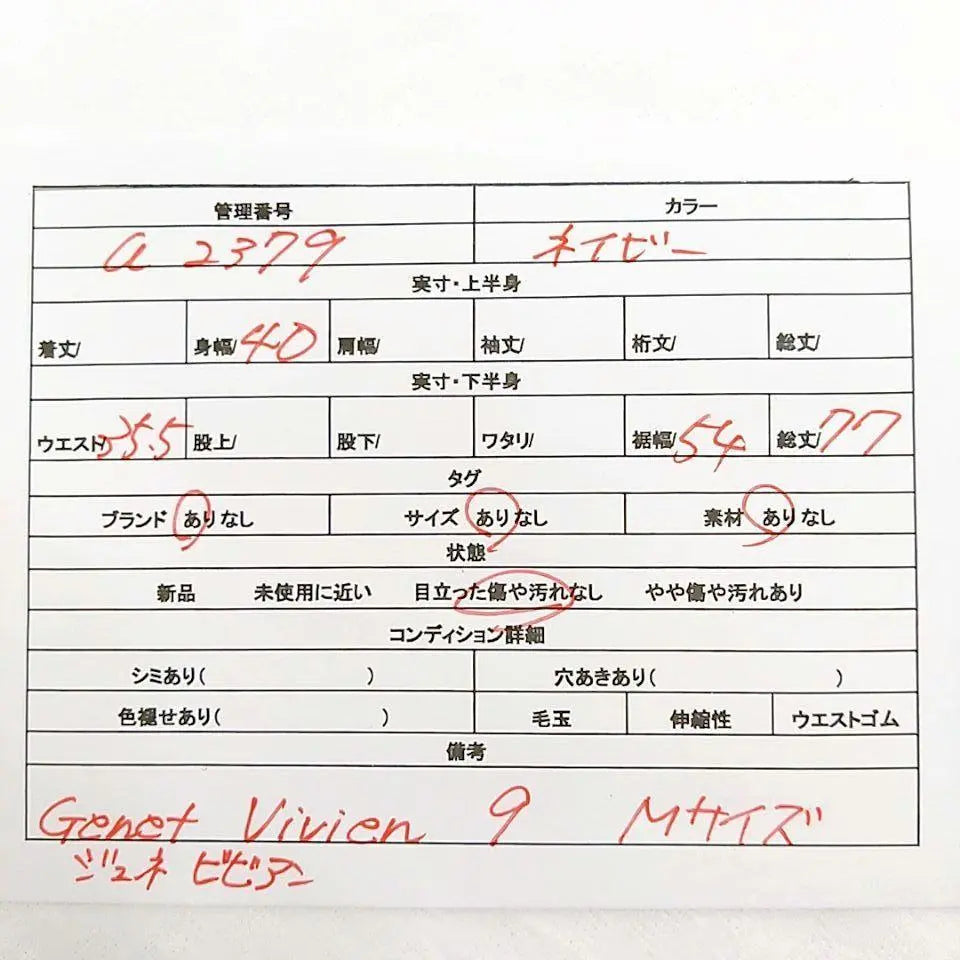 管理番号 カラー
a 2379 ネイビー
実寸・上半身
着丈/ 身幅/40 肩幅/ 袖丈/ 裄丈/ 総丈/
実寸・下半身
ウエスト/35.5 股上/ 股下/ ワタリ/ 裾幅/54 総丈/77
タグ
ブランド ありなし サイズ ありなし 素材 ありなし
状態
新品 未使用に近い 目立った傷や汚れなし やや傷や汚れあり
コンディション詳細
シミあり( ) 穴あきあり( )
色褪せあり( ) 毛玉 伸縮性 ウエストゴム
備考
Genet Vivien 9 Mサイズ
ジュネ ビビアン